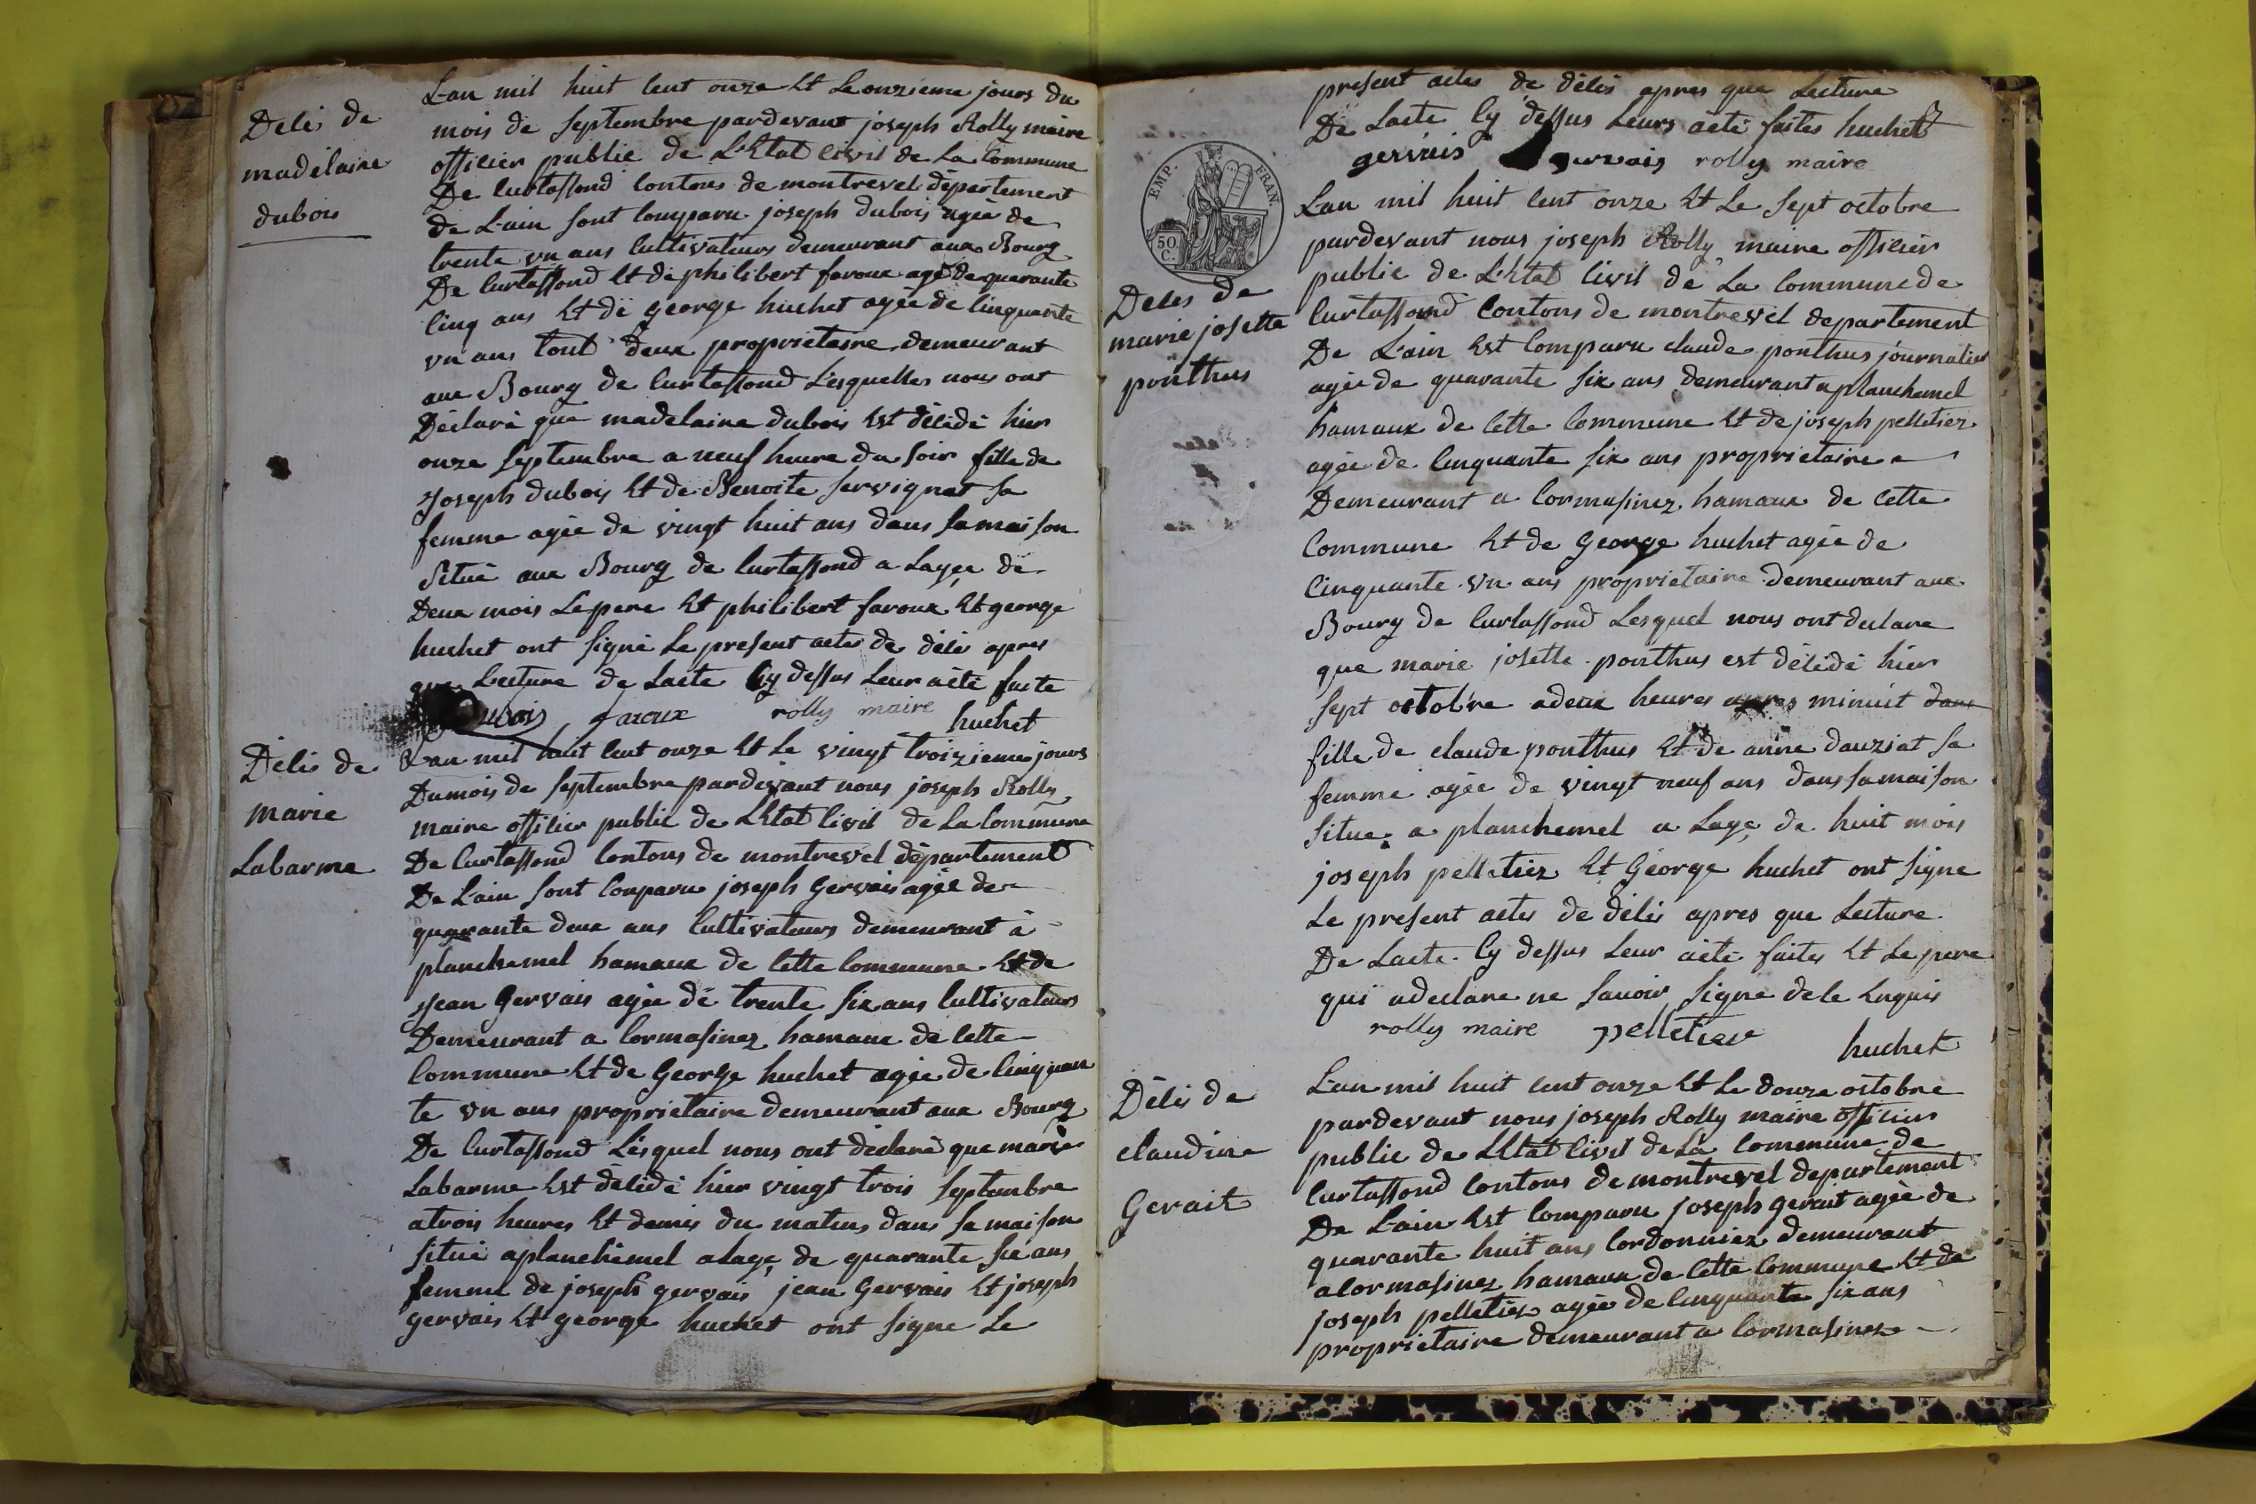 Délès de
madelaine
dubois
L'an mil huit Cent onze Et Le onzieme jours du
mois de septembre pardevant joseph Rolly maire
officier public de L'Etat Civil de La Commune
De Curtassond Contons de montrevel département
de L'ain sont Comparu joseph dubois agée de
trente vn ans Cultivateurs demeurant aux Bourg
De Curtassond Et de philibert faroux agé de quarante
Cinq ans Et de george huchet agée de Cinquante
vn ans tout deux proprietaire demeurant
aux Bourg de Curtassond Lesquelles nous ont
Déclaré que madelaine dubois Est décédé hier
onze septembre a neuf heure du soir fille de
joseph dubois Et de Benoite servignat sa
femme agée de vingt huit ans dans sa maison
situé aux Bourg de Curtassond a Lage de
Deux mois Le pere Et philibert faroux Et george
huchet ont signé Le present actes de délès apres
que Lecture de Lacte Cy dessus Leur aété faite
Dubois faroux rolly maire huchet
Délès de
Marie
Labarme
L'an mil huit Cent onze Et Le vingt troizieme jours
Du mois de septembre pardevant nous joseph Rolly
maire officier public de LEtat Civil de La Commune
De Curtassond Contons de montrevel département
De L'ain sont Comparu joseph Gervais agée de
quarante deux ans Cultivateurs demeurant à
planchemel hamaux de Cette Commune Et de
jean Gervais agée de trente six ans Cultivateurs
Demeurant a Cormasinez hamaux de Cette
Commune Et de George huchet agée de Cinquan
te vn ans proprietaire demeurant aux Bourg
De Curtassond Lésquel nous ont déclaré que marie
Labarme Est décédé hier vingt trois septembre
atrois heures Et demis du matins dans sa maison
situé aplanchemel alage de quarante six ans
femme de joseph gervais jean Gervais Et joseph
gervais Et george huchet ont signe Le
present actes de délès apres que Lecture
De Lacte Cy dessus Leurs aété faites huchet
gervais gervais rolly maire
EMP. FRAN.
50 C.
Délès de
marie josette
ponthus
L'an mil huit Cent onze Et Le sept octobre
pardevant nous joseph Rolly maire officier
public de L'Etat Civil de La Commune de
Curtassond Contons de montrevel departement
De L'ain Est Comparu claude ponthus journalier
agée de quarante six ans demeurant aplanchemel
hamaux de Cette Commune Et de joseph pelletiez
agée de Cinquante six ans proprietaire
Demeurant a Cormasinez hamaux de Cette
Commune Et de George huchet agée de
Cinquante vn ans proprietaire demeurant aux
Bourg de Curtassond Lesquel nous ont declare
que marie josette ponthus est décédé hier
sept octobre adeux heures apres minuit dans
fille de claude ponthus Et de anne dauziat sa
femme agée de vingt neuf ans dans sa maison
situe a planchemel a Lage de huit mois
joseph pelletiez Et George huchet ont signe
Le present actes de délès apres que Lecture
De Lacte Cy dessus Leur aété faites Et Le pere
qui adeclare ne savoir signe dele Enquis
rolly maire pelletier huchet
Délès de
claudine
Gerait
L'an mil huit cent onze Et Le douze octobre
pardevant nous joseph Rolly maire officier
public de LEtat Civil de La Commune de
Curtassond Contons de montrevel departement
De L'ain Est Comparu joseph gerait agée de
quarante huit ans Cordonniez demeurant
a Cormasinez hamaux de Cette Commune Et de
joseph pelletiez agée de Cinquante six ans
proprietaire demeurant a Cormasinez